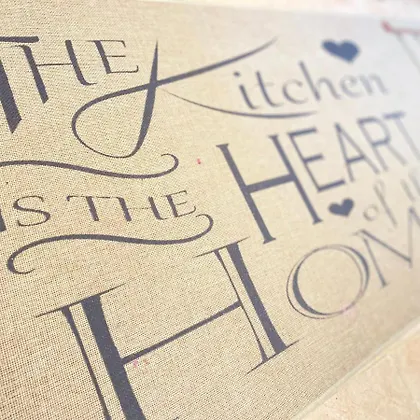 THE Kitchen
IS THE HEART
of
HOM